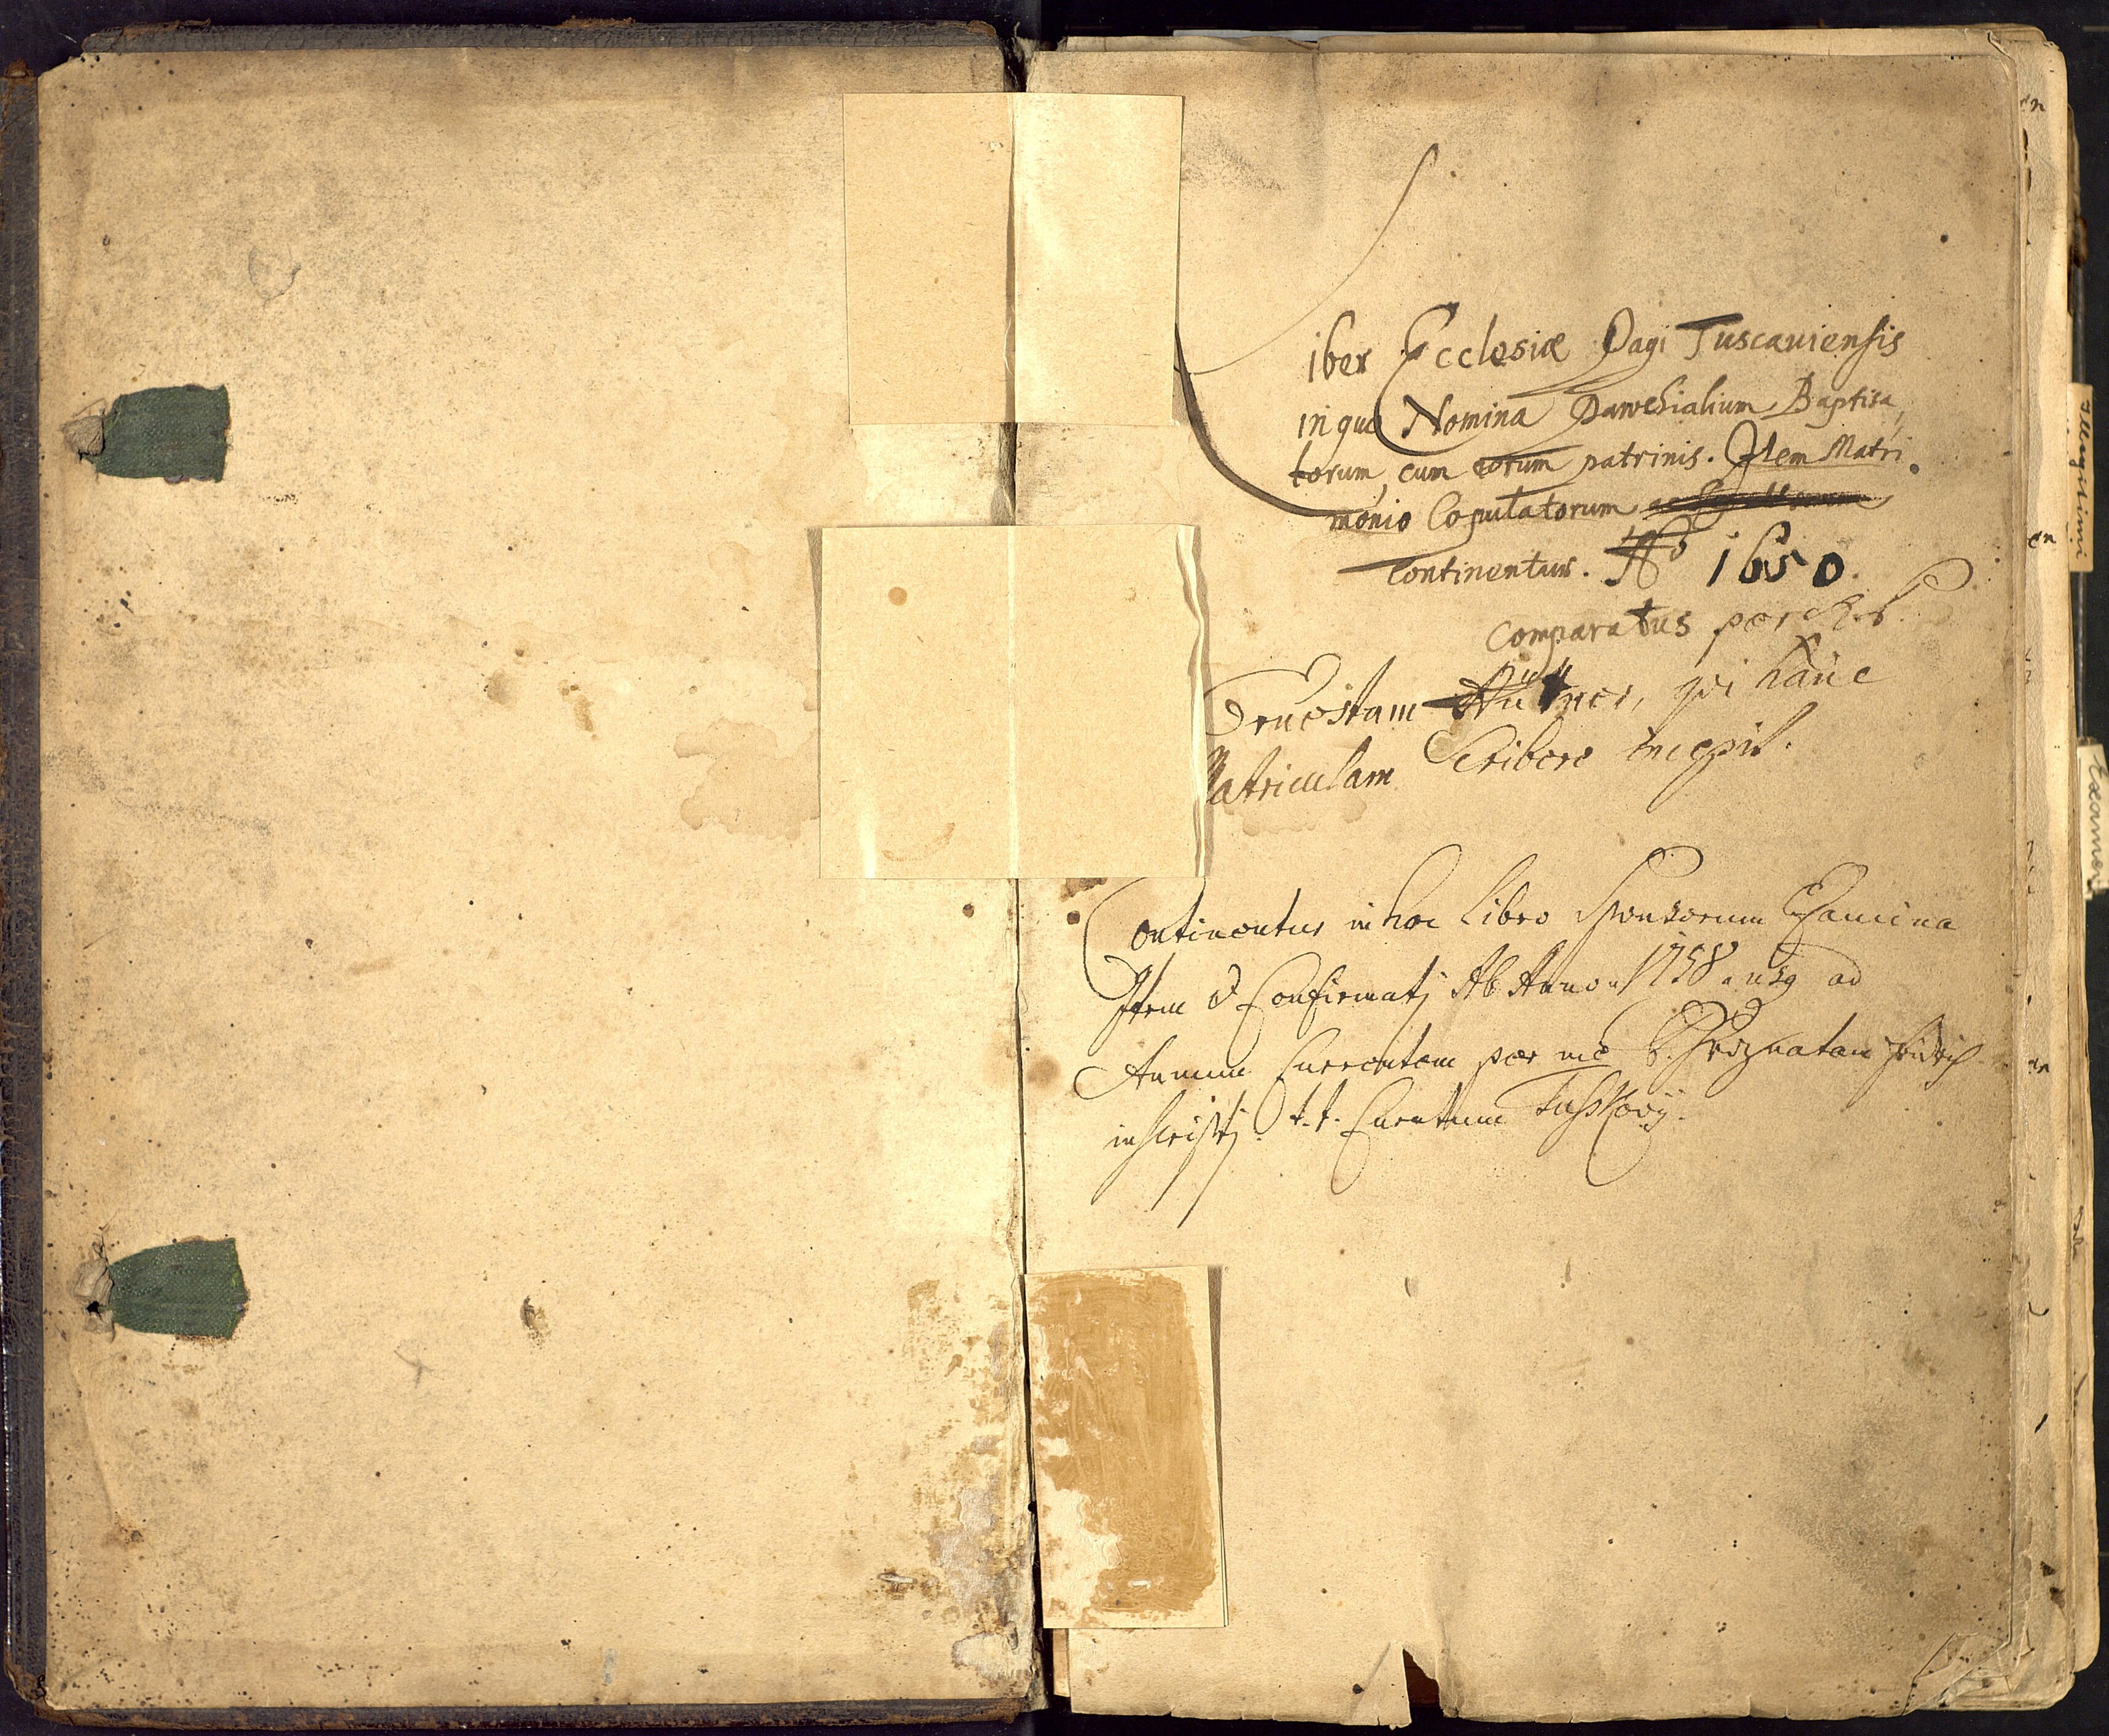 iber Ecclesiæ Pagi Tuscaviensis
in quo Nomina Parochialium Baptisa,
torum, cum eorum patrinis. Item Matri
monio Copulatorum
continentur. Aō 1650.
Comparatus per
Ernestam qui hanc
Matriculam Scribere incepit.
Continentur in hoc Libro Sponsorum Examina
Item & Confirmatj Ab Anno 1758 usq ad
Annum Currentem per me
t.t. Curatum Tusskovij.